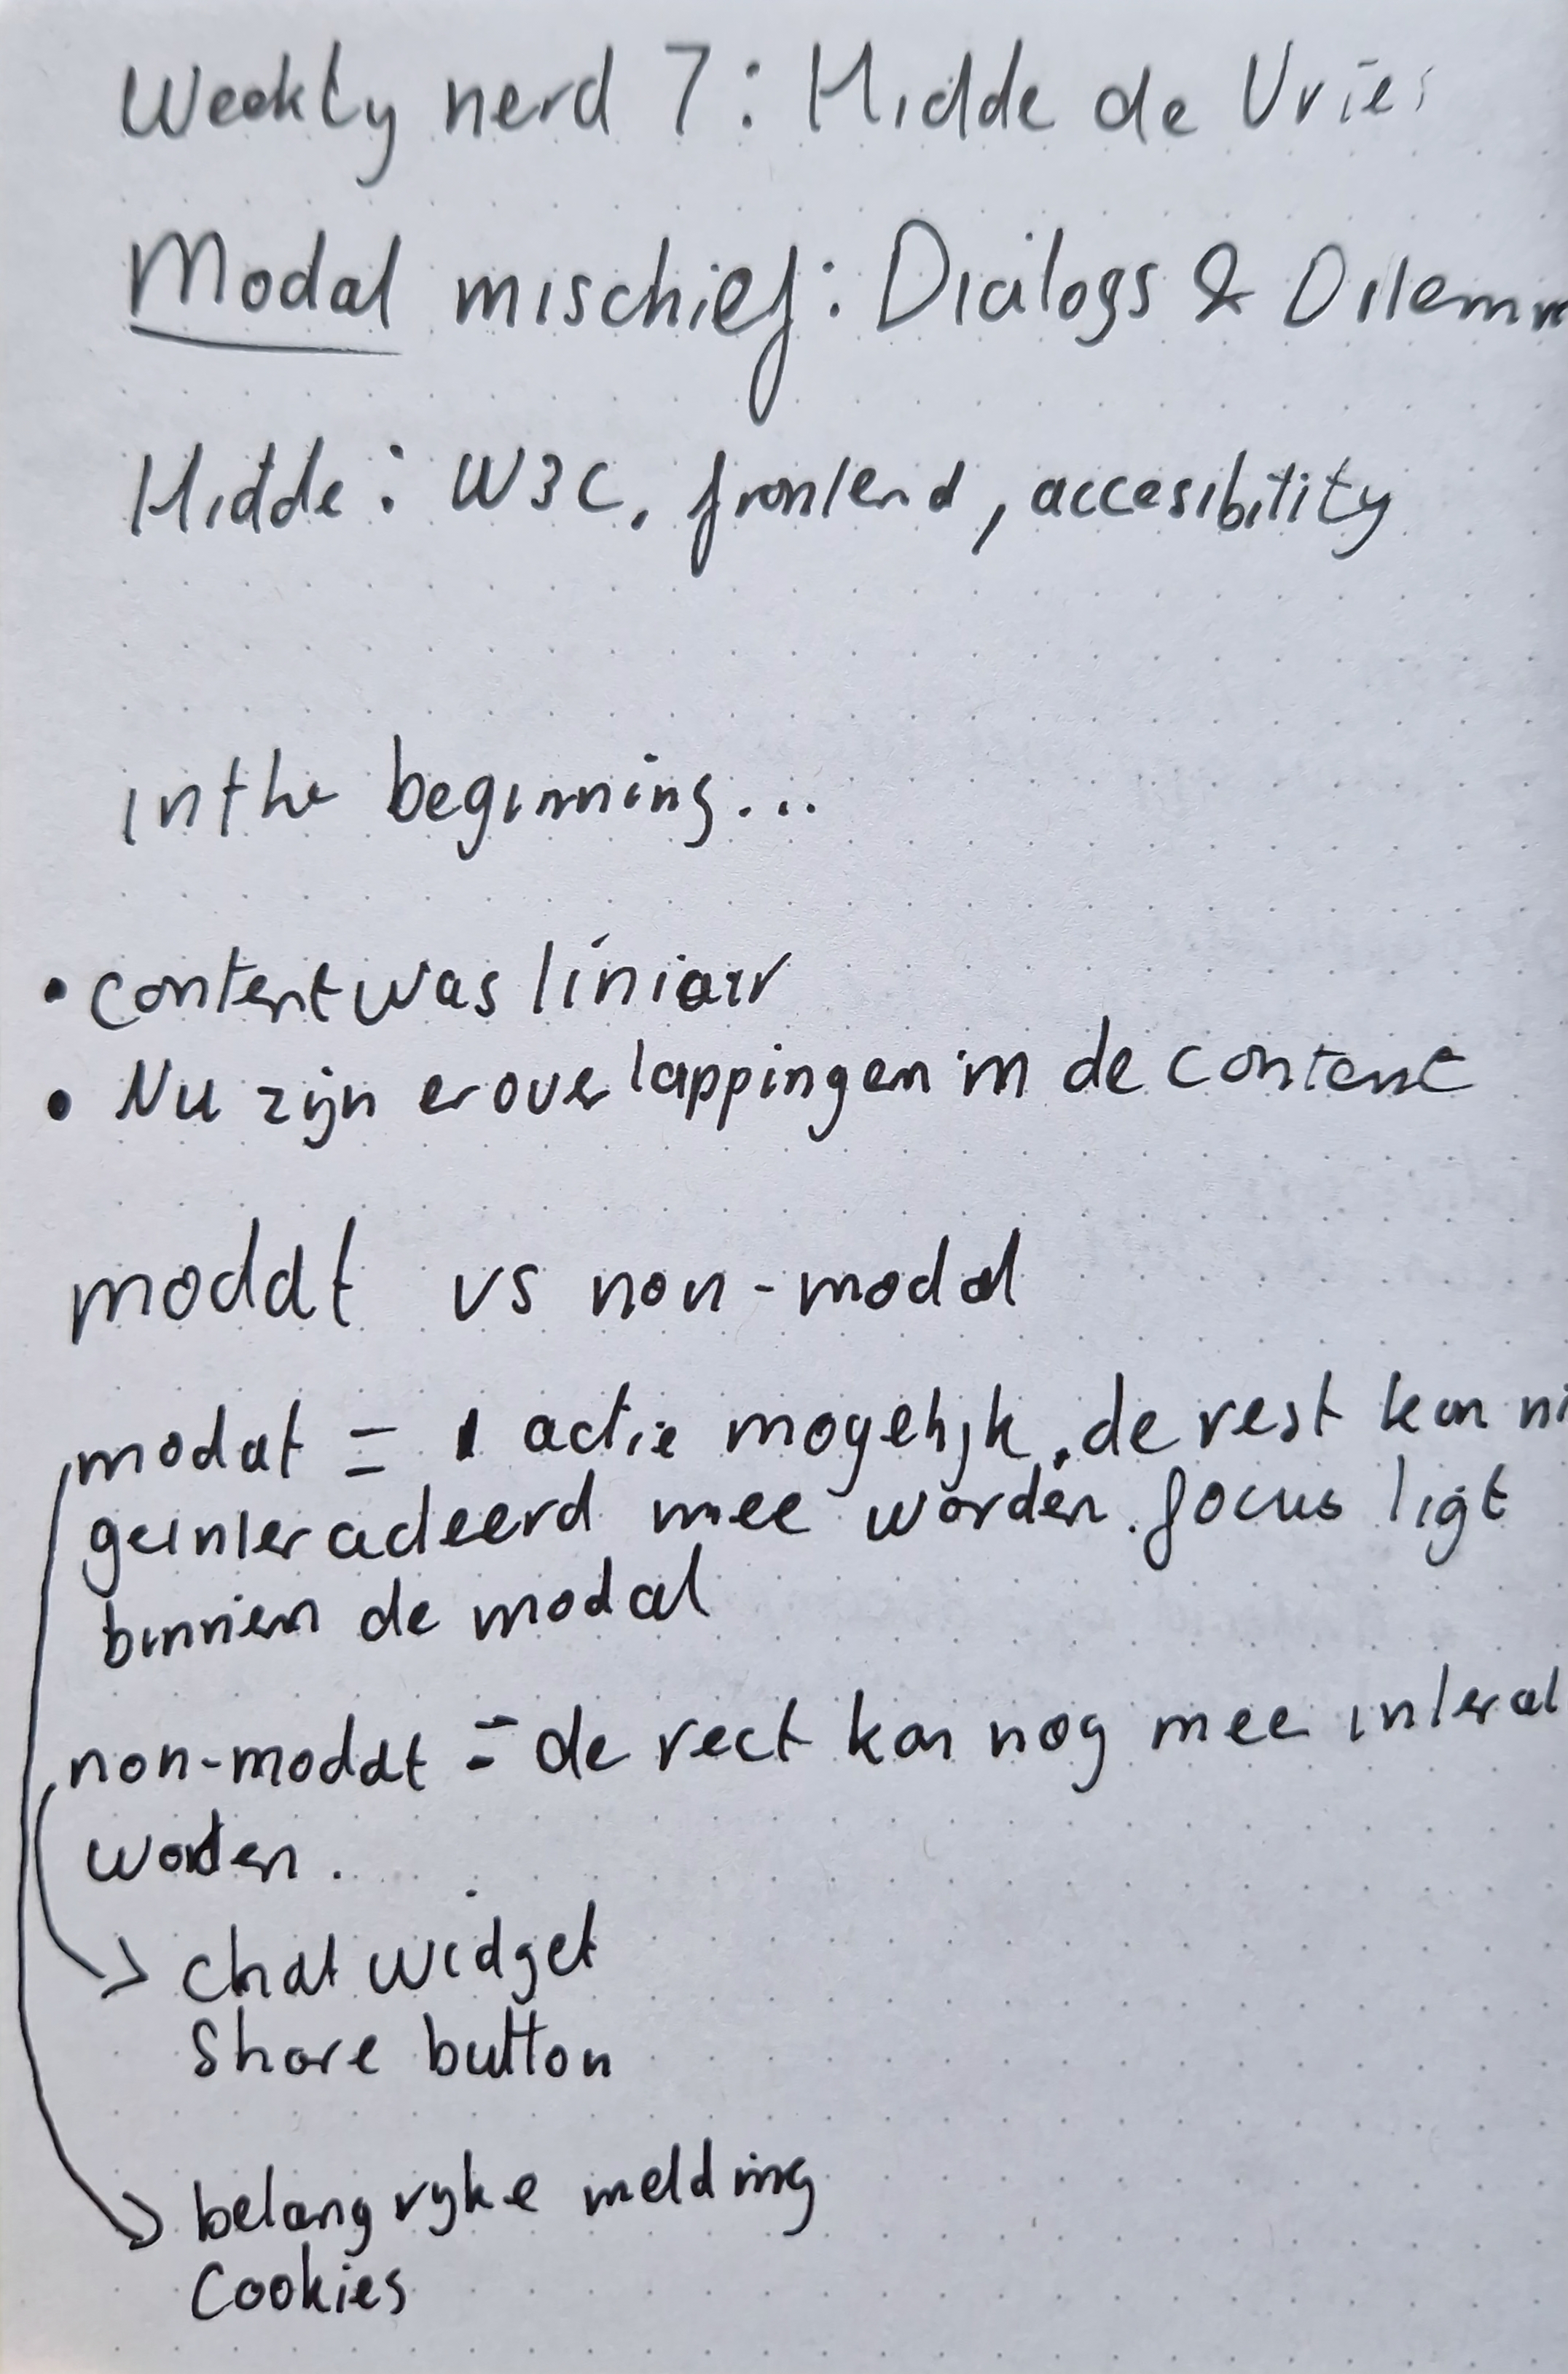 Weekly nerd 7: Hidde de Vries
Modal mischief: Dialogs & Dilemm
Hidde: W3C, frontend, accesibility
in the beginning...
• content was liniair
• Nu zijn er overlappingen in de content
modal vs non-modal
modal = 1 actie mogelijk. de rest kan ni
geinteracteerd mee worden. focus ligt
binnen de modal
non-modal = de rect kan nog mee interact
worden.
→ chat widget
Share button
→ belangrijke melding
Cookies